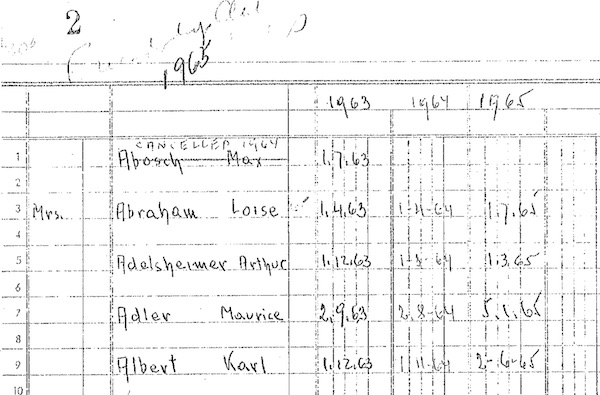 2
1965
1963 1964 1965
CANCELLED 1964
1 Abosch Max 1.7.63
2
3 Mrs. Abraham Loise 1.4.63 1-4-64 1.7.65
4
5 Adelsheimer Arthur 1.12.63 64 1.3.65
6
7 Adler Maurice 2.9.63 2.8-64 5.1.65
8
9 Albert Karl 1.12.63 1.11-64 2-6-65
10